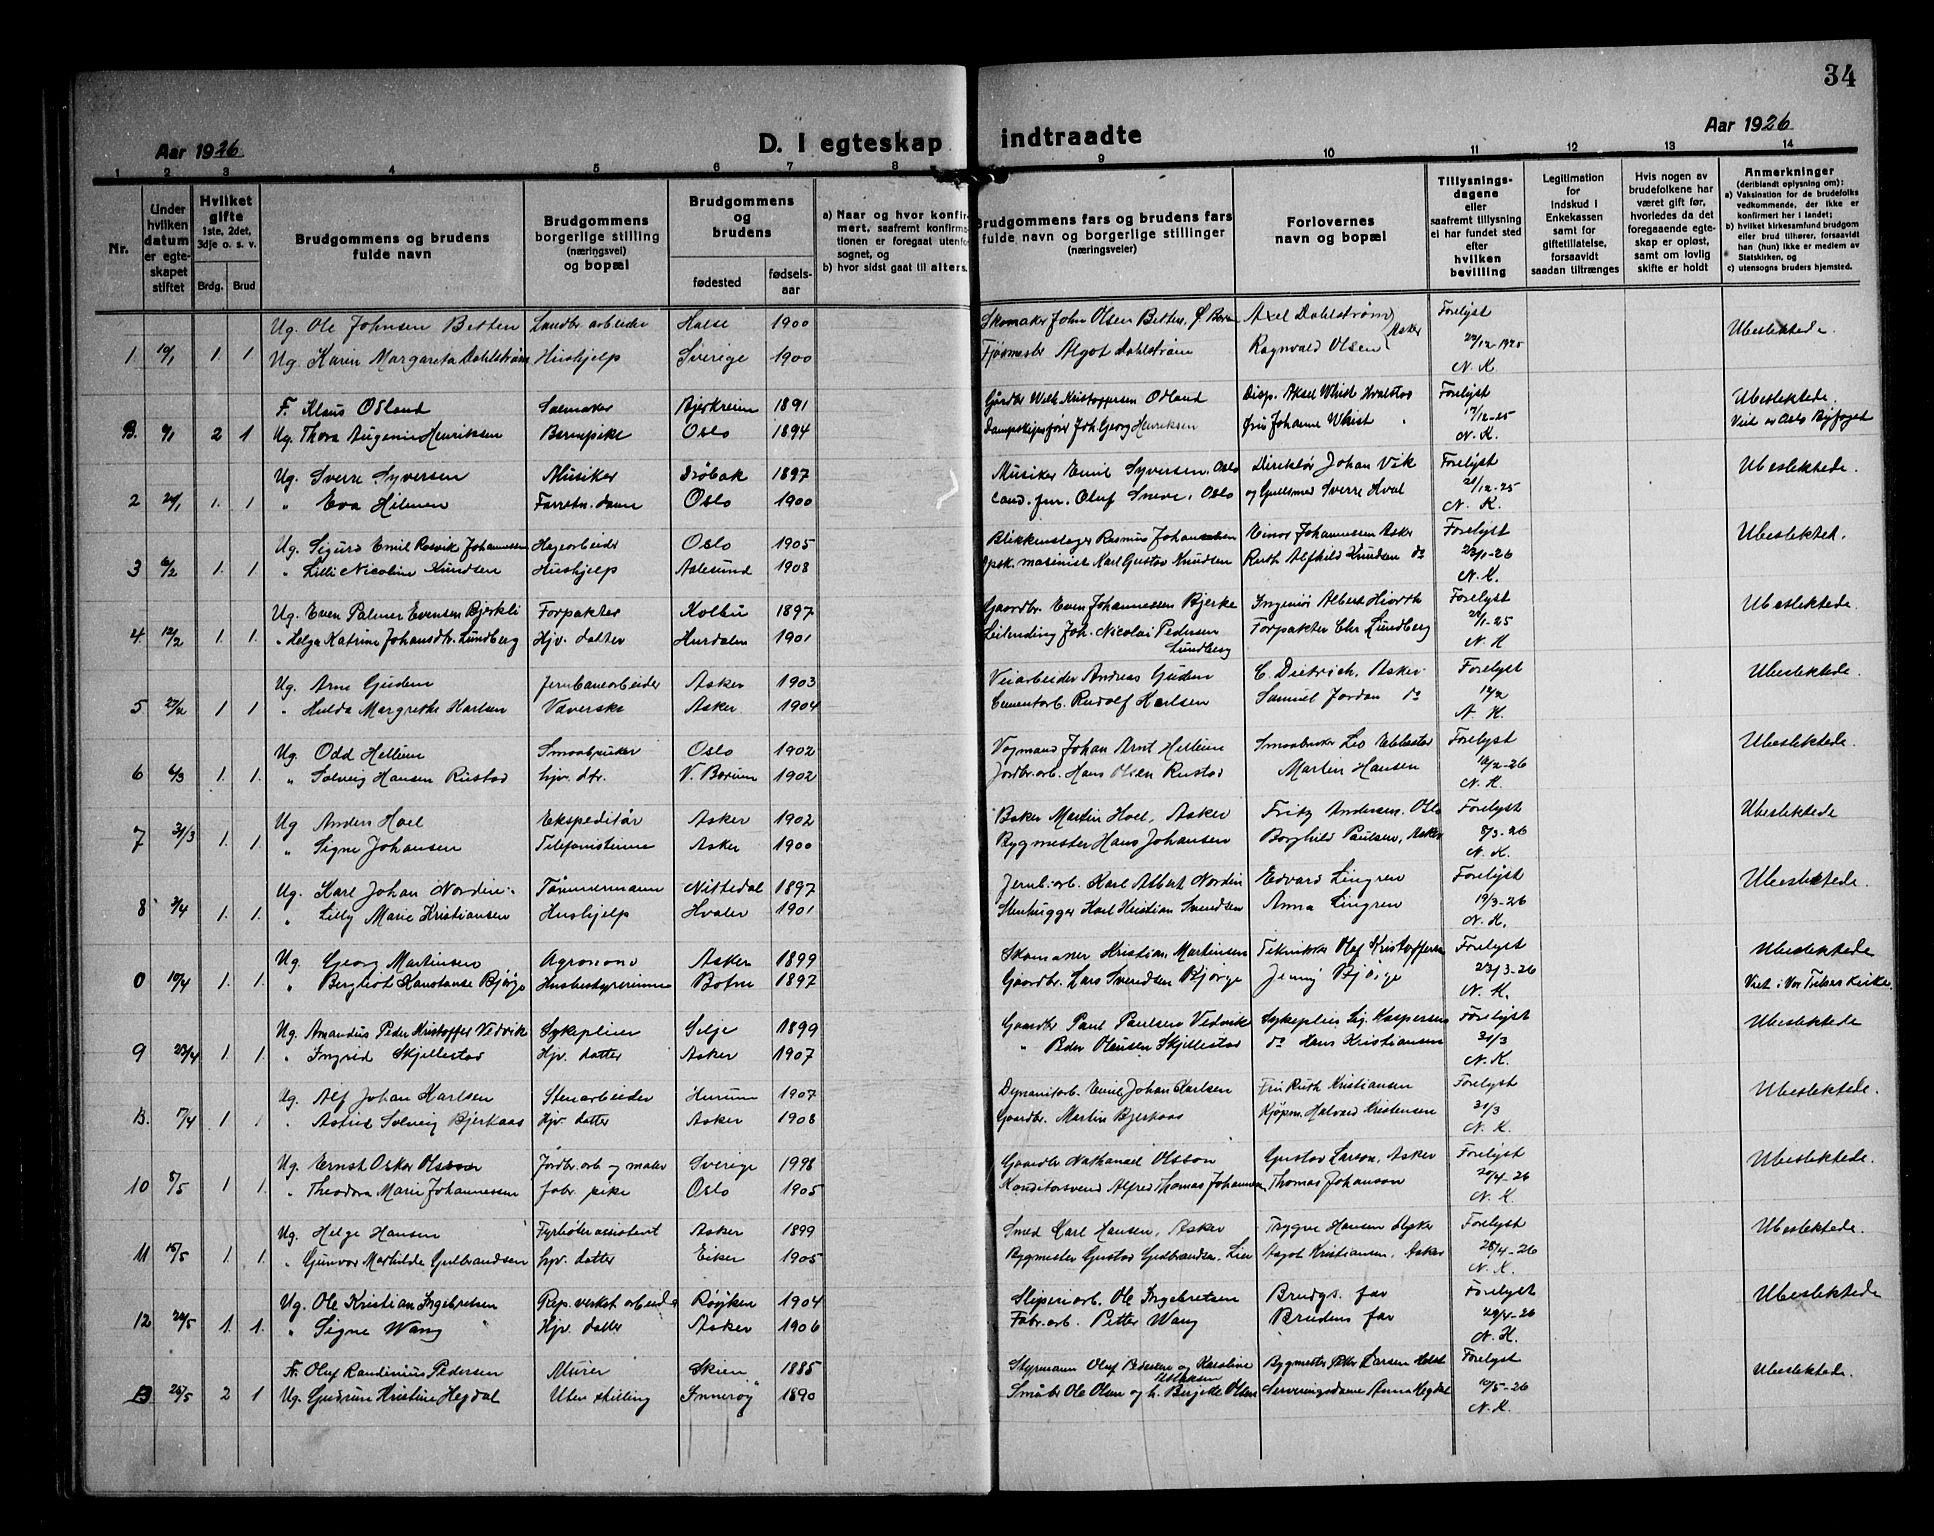 34
Aar 1926
D. I egteskap indtraadte
Aar 1926
1 2 3 4 5 6 7 8 9 10 11 12 13 14
Nr.
Under hvilken datum er egteskapet stiftet
Hvilket gifte 1ste, 2det, 3dje o. s. v.
Brdg. Brud
Brudgommens og brudens fulde navn
Brudgommens borgerlige stilling (næringsvei) og bopæl
Brudgommens og brudens
fødested
fødselsaar
a) Naar og hvor konfirmert, saafremt konfirmationen er foregaat utenfor sognet, og
b) hvor sidst gaat til alters.
Brudgommens fars og brudens fars fulde navn og borgerlige stillinger (næringsveier)
Forlovernes navn og bopæl
Tillysningsdagene eller saafremt tillysning ei har fundet sted efter hvilken bevilling
Legitimation for Indskud i Enkekassen samt for giftetillatelse, forsaavidt saadan tiltrænges
Hvis nogen av brudefolkene har været gift før, hvorledes da det foregaaende egteskap er opløst, samt om lovlig skifte er holdt
Anmerkninger (deriblandt oplysning om):
a) Vaksination for de brudefolks vedkommende, der ikke er konfirmert her i landet;
b) hvilket kirkesamfund brudgom eller brud tilhører, forsaavidt han (hun) ikke er medlem av Statskirken, og
c) utensogns bruders hjemsted.
Ug. Ole Johnsen Betten Landbr. arbeider Halse 1900 Skomaker John Olsen Betten, Axel Dahlstrøm Forelyst Ubeslektede.
1 10/1 1. 1 Ug. Karin Margareta Dahlstrøm Hushjelp Sverige 1900 Fjøsmester Algot Dahlstrøm Ragnvald Olsen Asker 22/12-1925
N. K.
F. Klaus Osland Salmaker Bjerkreim 1891 Gårdbr Kristoffersen Osland Disp. Aksel Whist Hvalstad Forelyst Ubeslektede.
B. 9/1 2 1 Ug. Thora Augenie Henriksen Barnepike Oslo 1894 Dampskipsfører Joh Georg Henriksen Fru Johanne Whist 17/12-25 Viet av Oslo Byfoged
N. K.
Ug. Sverre Syversen Musiker Drøbak 1897 Musiker Emil Syversen, Oslo Direktør Johan Vik Forelyst Ubeslektede.
2 1. 1 " Eva Hilmen Forretn. dame Oslo 1900 Cand. jur. Oluf Sneve, Oslo og Gullsmed Sverre Hval 21/12-25
N. K.
Ug. Sigurd Emil Rosvik Johannessen Hagearbeider Oslo 1905 Blikkenslager Rasmus Johannessen Einar Johannessen Asker Forelyst Ubeslekted.
3 6/2 1. 1. " Lilli Nicoline Knudsen Hushjelp Aalesund 1908 masinist Karl Gustav Knudsen Ruth Alfhild Knudsen do 22/1-26
N. K.
Ug. Even Palmer Evensen Bjerkli Forpakter Kolbu 1897 Gaardbr. Even Johannessen Bjerke Ingeniør Albert Hiorth Forelyst Ubeslektede.
4 12/2 1. 1. " Helga Katrine Johansdtr. Lundberg Hjv. datter Hurdalen 1901 Leilending Joh. Nicolai Pedersen Lundberg Forpakter Chr Lundberg 24/1-25
N. K
Ug. Arne Guden Jernbanearbeider Asker 1903 Veiarbeider Andreas Guden C. Dietrich, Asker Forelyst Ubeslektede.
5 27/2 1. 1. " Hulda Margrethe Karlsen Væverske Asker 1904 Cementarb. Rudolf Karlsen Samuel Jordan do 12/2
N. K.
Ug. Odd Helleim Smaabruker Oslo 1902 Vognmand Johan Arnt Helleim Smaabruker Leo Forelyst Ubeslektede.
6 6/3 1. 1. " Solveig Hansen Rustad hjv. dtr. V. Bærum 1902 Jordbr.arb. Hans Olsen Rustad Martin Hansen 12/2-26
N. K.
Ug Anders Hoel Ekspeditør Asker 1902 Baker Martin Hoel, Asker Fritz Andersen, Oslo Forelyst Ubeslektede
7 31/3 1. 1. " Signe Johansen Telefonistinne Asker 1900 Bygmester Hans Johansen Borghild Paulsen, Asker 8/3-26
N. K.
Ug. Karl Johan Nordin Tømmermann Nittedal 1897 Jernb.arb. Karl Albert Nordin Edvard Lingren Forelyst Ubeslektede.
8 3/4 1. 1. " Lilly Marie Kristiansen Hushjelp Hvaler 1901 Stenhugger Karl Kristian Svendsen Anna Lingren 19/3-26
N. K.
Ug. Georg Martinsen Agronom Asker 1899 Skomaker Kristian Martinsen Tekniker Olaf Kristoffersen Forelyst Ubeslektede
0 10/4 1. 1. " Bergliot Konstanse Bjørge Husbestyrerinne Botne 1897 Gaardbr. Lars Svendsen Bjørge Jenny Bjørge 23/3-26 Viet i Vor Frelsers Kirke.
N. K.
Ug. Amandus Peder Kristoffer Vedvik Sykepleier Selje 1899 Gaardbr Paul Paulsen Vedvik Sykepleier Sig. Kaspersen Forelyst Ubeslektede
9 23/4 1. 1. " Ingrid Skjellestad Hjv. datter Asker 1907 " Peder Olausen Skjellestad do Hans Kristiansen 31/3
N. K.
Ug. Alf Johan Karlsen Stenarbeider Hurum 1907 Dynamitarb. Emil Johan Karlsen Fru Ruth Kristiansen Forelyst Ubeslektede.
B. 17/4 1 1 " Astrid Solveig Bjerkaas Hjv. datter Asker 1908 Gaardbr. Martin Bjerkaas Kjøpm. Halvard Kristensen 31/3
N. K.
Ug. Ernst Oskar Olsson Jordbr.arb og maler Sverige 1998 Gaardbr Nathanael Olsson Gustav Larson, Asker Forelyst Ubeslektede.
10 8/5 1 1. " Theodora Marie Johannessen fabr. pike Oslo 1905 Konditorsvend Alfred Thomas Johannessen Thomas Johanson 20/4-26
N. K.
Ug. Helge Hansen Fyrbøterassistent Asker 1899 Smed Karl Hansen, Asker Trygve Hansen Asker Forelyst Ubeslektede.
11 15/5 1. 1. " Gunvor Mathilde Gulbrandsen hjv. datter Eiker 1905 Bygmester Gustav Gulbrandsen, Lier Aagot Kristiansen, Asker 28/4-26
N. K.
Ug. Ole Kristian Ingebretsen Rep. verkst arbeider Røyken 1904 Sliperiarb. Ole Ingebretsen Brudgs. far Forelyst Ubeslektede
12 24/5 1. 1. " Signe Wang Hjv. datter Asker 1906 Fabr.arb. Petter Wang Brudens far 29/4-26
N. K.
Fr. Oluf Randinius Pedersen Murer Skien 1885 Styrmann Oluf Pedersen og Karoline Bygmester Petter Larsen Holst Forelyst Ubeslektede.
B 26/5 2 1 Ug. Gudrun Kristine Hegdal Uten stilling Inderøy 1890 Småbr Ole Olsen og h. Berjette Olsen Serveringsdame Anna Hegdal 10/5-26
N. K.